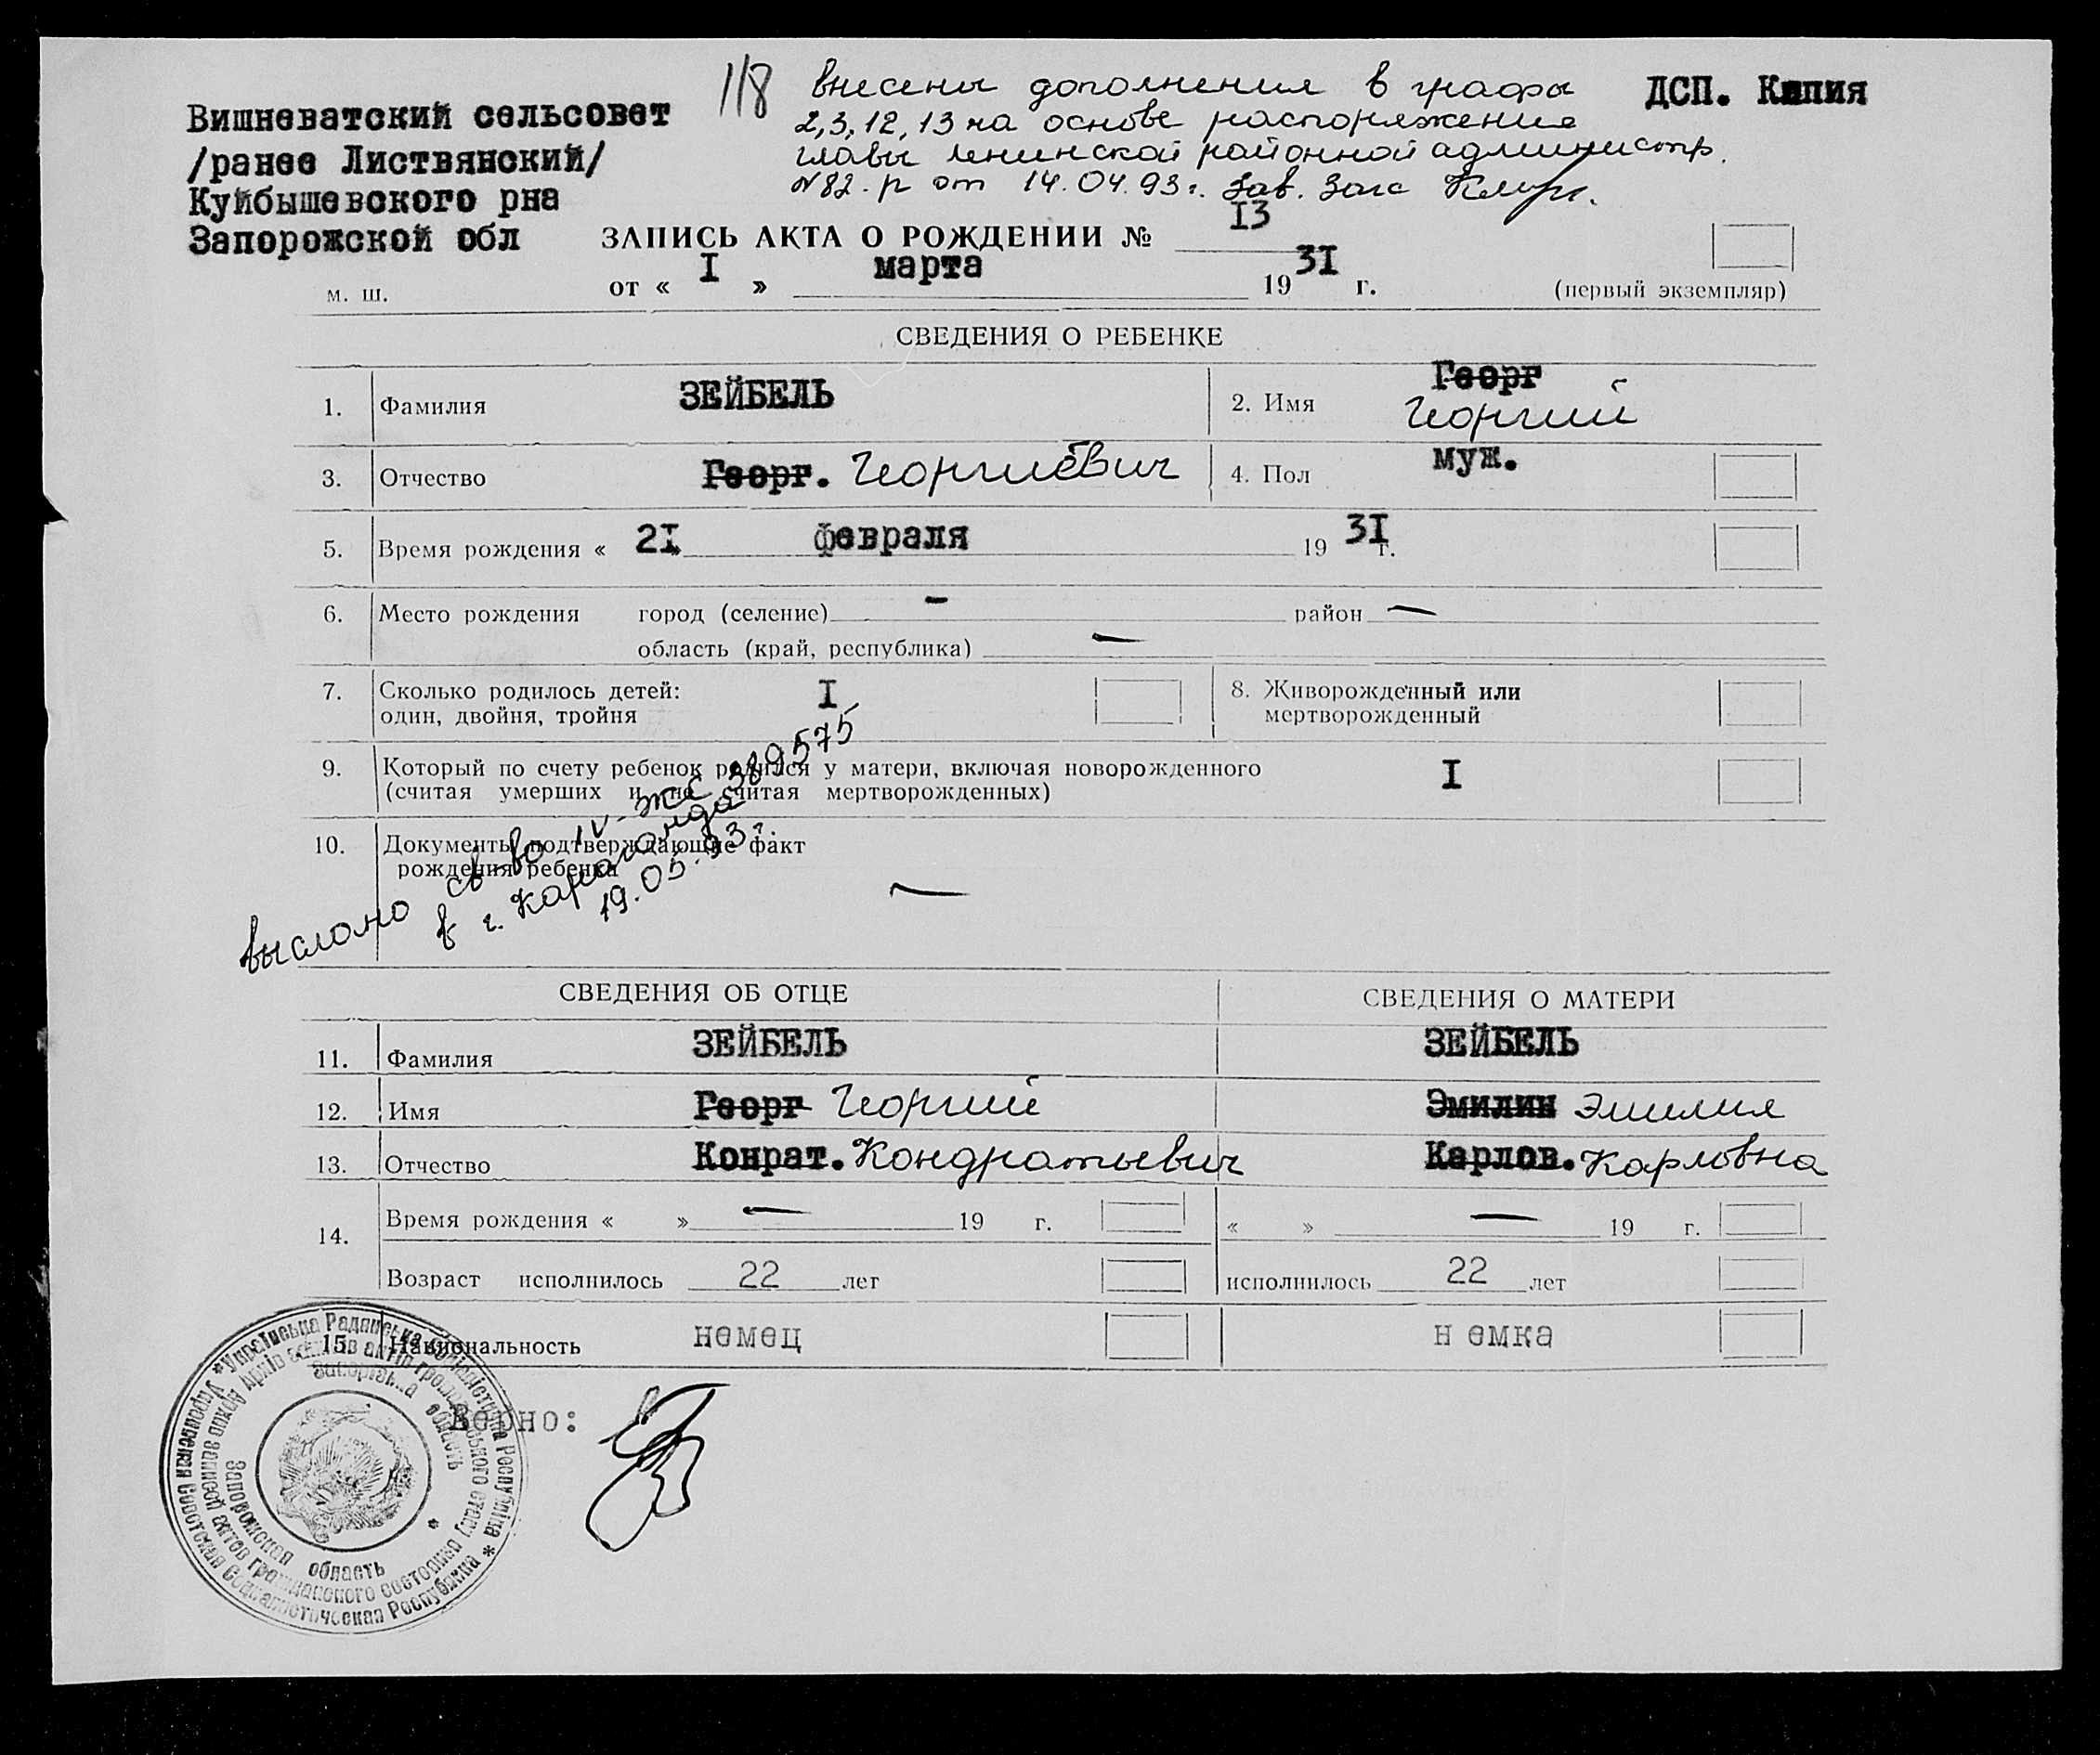 118
внесены дополнения в графы
2,3,12,13 на основе распоряжения
главы Ленинской районной администр.
№82-р от 14.04.93г. Зав. Загс
ДСП. Копия
Вишневатский сельсовет
/ранее Листвянский/
Куйбышевского рна
Запорожской обл
ЗАПИСЬ АКТА О РОЖДЕНИИ № 13
от « I » марта 1931 г.
м. ш.
(первый экземпляр)
СВЕДЕНИЯ О РЕБЕНКЕ
1. Фамилия ЗЕЙБЕЛЬ 2. Имя Георг Георгий
3. Отчество Георг. Георгиевич 4. Пол муж.
5. Время рождения « 2I » февраля 193I г.
6. Место рождения город (селение) - район —
область (край, республика) —
7. Сколько родилось детей: I
один, двойня, тройня
8. Живорожденный или
мертворожденный
9. Который по счету ребенок родился у матери, включая новорожденного I
(считая умерших и не считая мертворожденных)
10. Документы, подтверждающие факт
рождения ребенка —
выслано св-во IV-ЖС 389575
в г. Караганда
19.05.93г.
СВЕДЕНИЯ ОБ ОТЦЕ СВЕДЕНИЯ О МАТЕРИ
11. Фамилия ЗЕЙБЕЛЬ ЗЕЙБЕЛЬ
12. Имя Георг Георгий Эмилин Эмилия
13. Отчество Конрат. Кондратьевич Карлов. Карловна
14. Время рождения « » — 19 г. « » — 19 г.
Возраст исполнилось 22 лет исполнилось 22 лет
15. Национальность немец н емка
Верно:
*Українська Радянська Соціалістична Республіка*
Украинская Советская Социалистическая Республика
Архів записів актів громадського стану
Архив записей актов гражданского состояния
Запорізька область
Запорожская область